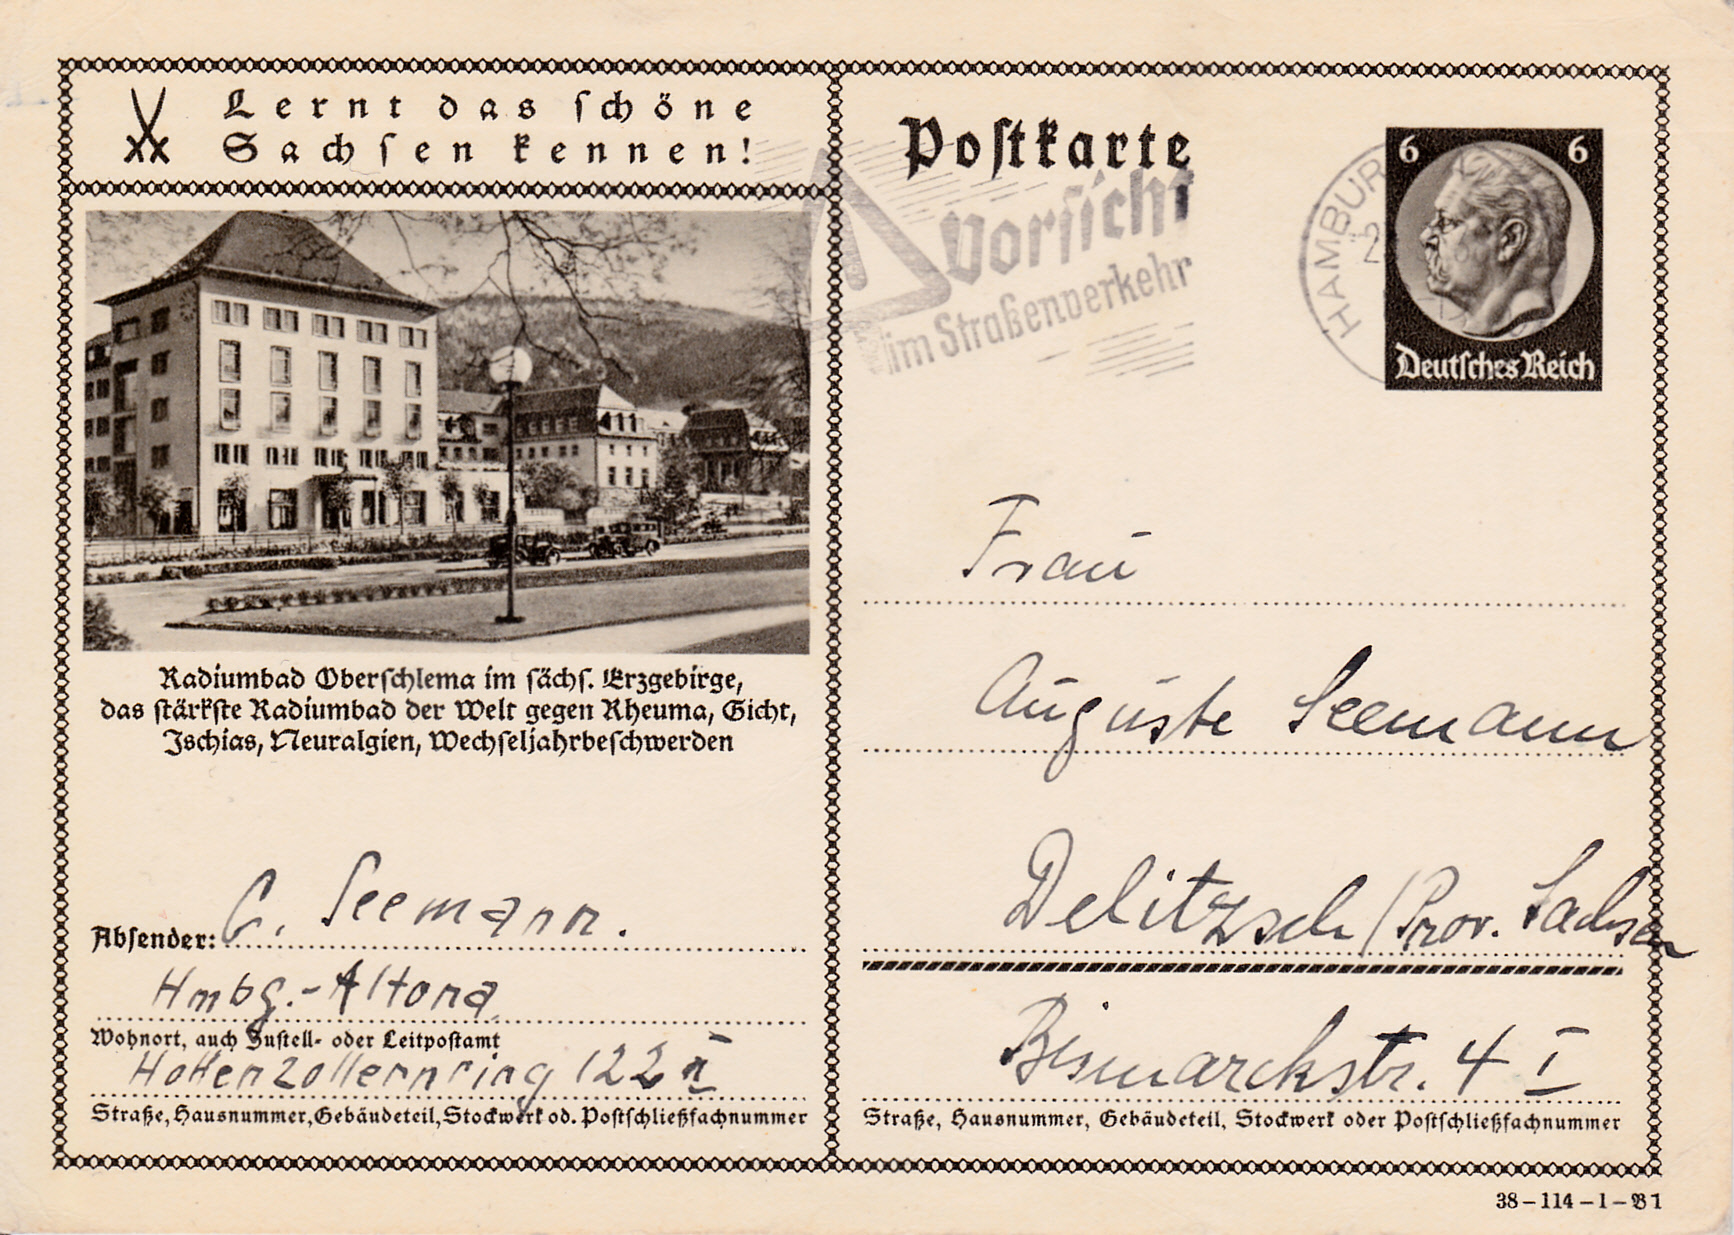 Lernt das schöne
Sachsen kennen!
Radiumbad Oberschlema im sächs. Erzgebirge,
das stärkste Radiumbad der Welt gegen Rheuma, Gicht,
Ischias, Neuralgien, Wechseljahrbeschwerden
Absender: C. Seemann.
Hmbg.-Altona
Wohnort, auch Zustell- oder Leitpostamt
Hohenzollernring 122 II
Straße, Hausnummer, Gebäudeteil, Stockwerk od. Postschließfachnummer
Postkarte
Vorsicht
im Straßenverkehr
HAMBUR
6 6
Deutsches Reich
Frau
Auguste Seemann
Delitzsch / Prov. Sachsen
Bismarckstr. 4 I
Straße, Hausnummer, Gebäudeteil, Stockwerk oder Postschließfachnummer
38-114-1-B1